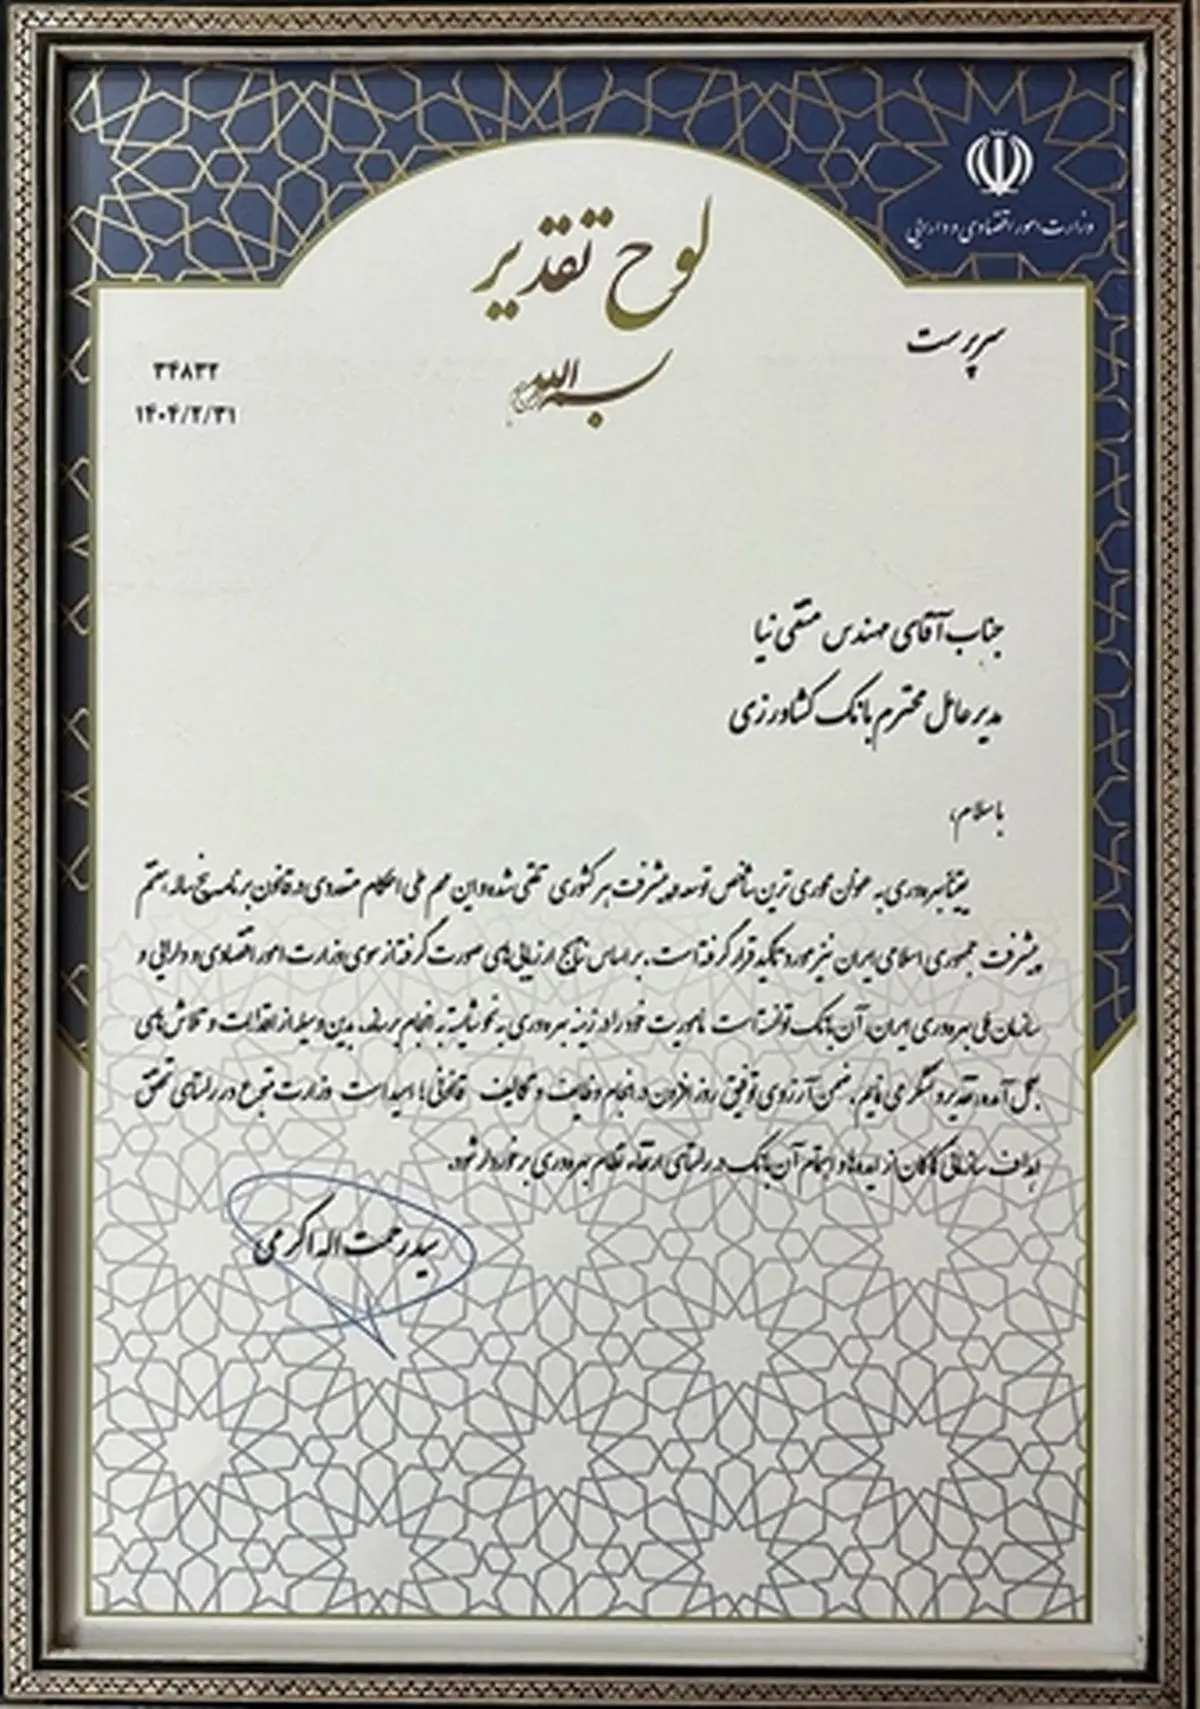 وزارت امور اقتصادی و دارایی
لوح تقدیر
بسم الله الرحمن الرحیم
سرپرست
۳۴۸۳۲
۱۴۰۴/۲/۳۱
جناب آقای مهندس متقی نیا
مدیرعامل محترم بانک کشاورزی
با سلام،
یقینا بهره‌وری به عنوان محوری ترین شاخص توسعه و پیشرفت هر کشوری تلقی شده و این مهم طی احکام متعددی در قانون برنامه پنج ساله هفتم
پیشرفت جمهوری اسلامی ایران نیز مورد تاکید قرار گرفته است. بر اساس نتایج ارزیابی‌های صورت گرفته از سوی وزارت امور اقتصادی و دارایی و
سازمان ملی بهره‌وری ایران، آن بانک توانسته است ماموریت خود را در زمینه بهره‌وری به نحو شایسته به انجام برساند. بدین وسیله از اقدامات و تلاش‌های
بعمل آمده، تقدیر و تشکر می نمایم. ضمن آرزوی توفیق روز افزون در انجام وظایف و تکالیف قانونی؛ امید است وزارت متبوع در راستای تحقق
اهداف سازمانی کماکان از ایده‌ها و اهتمام آن بانک در راستای ارتقاء نظام بهره‌وری برخوردار شود.
سید رحمت اله اکرمی